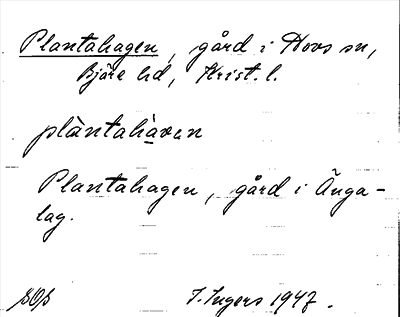 Plantahagen, gård i Hovs sn,
Bjäre hd, Krist. l.
plàntahàvən
Plantahagen, gård i Änga-
lag.
I. Ingers 1947.